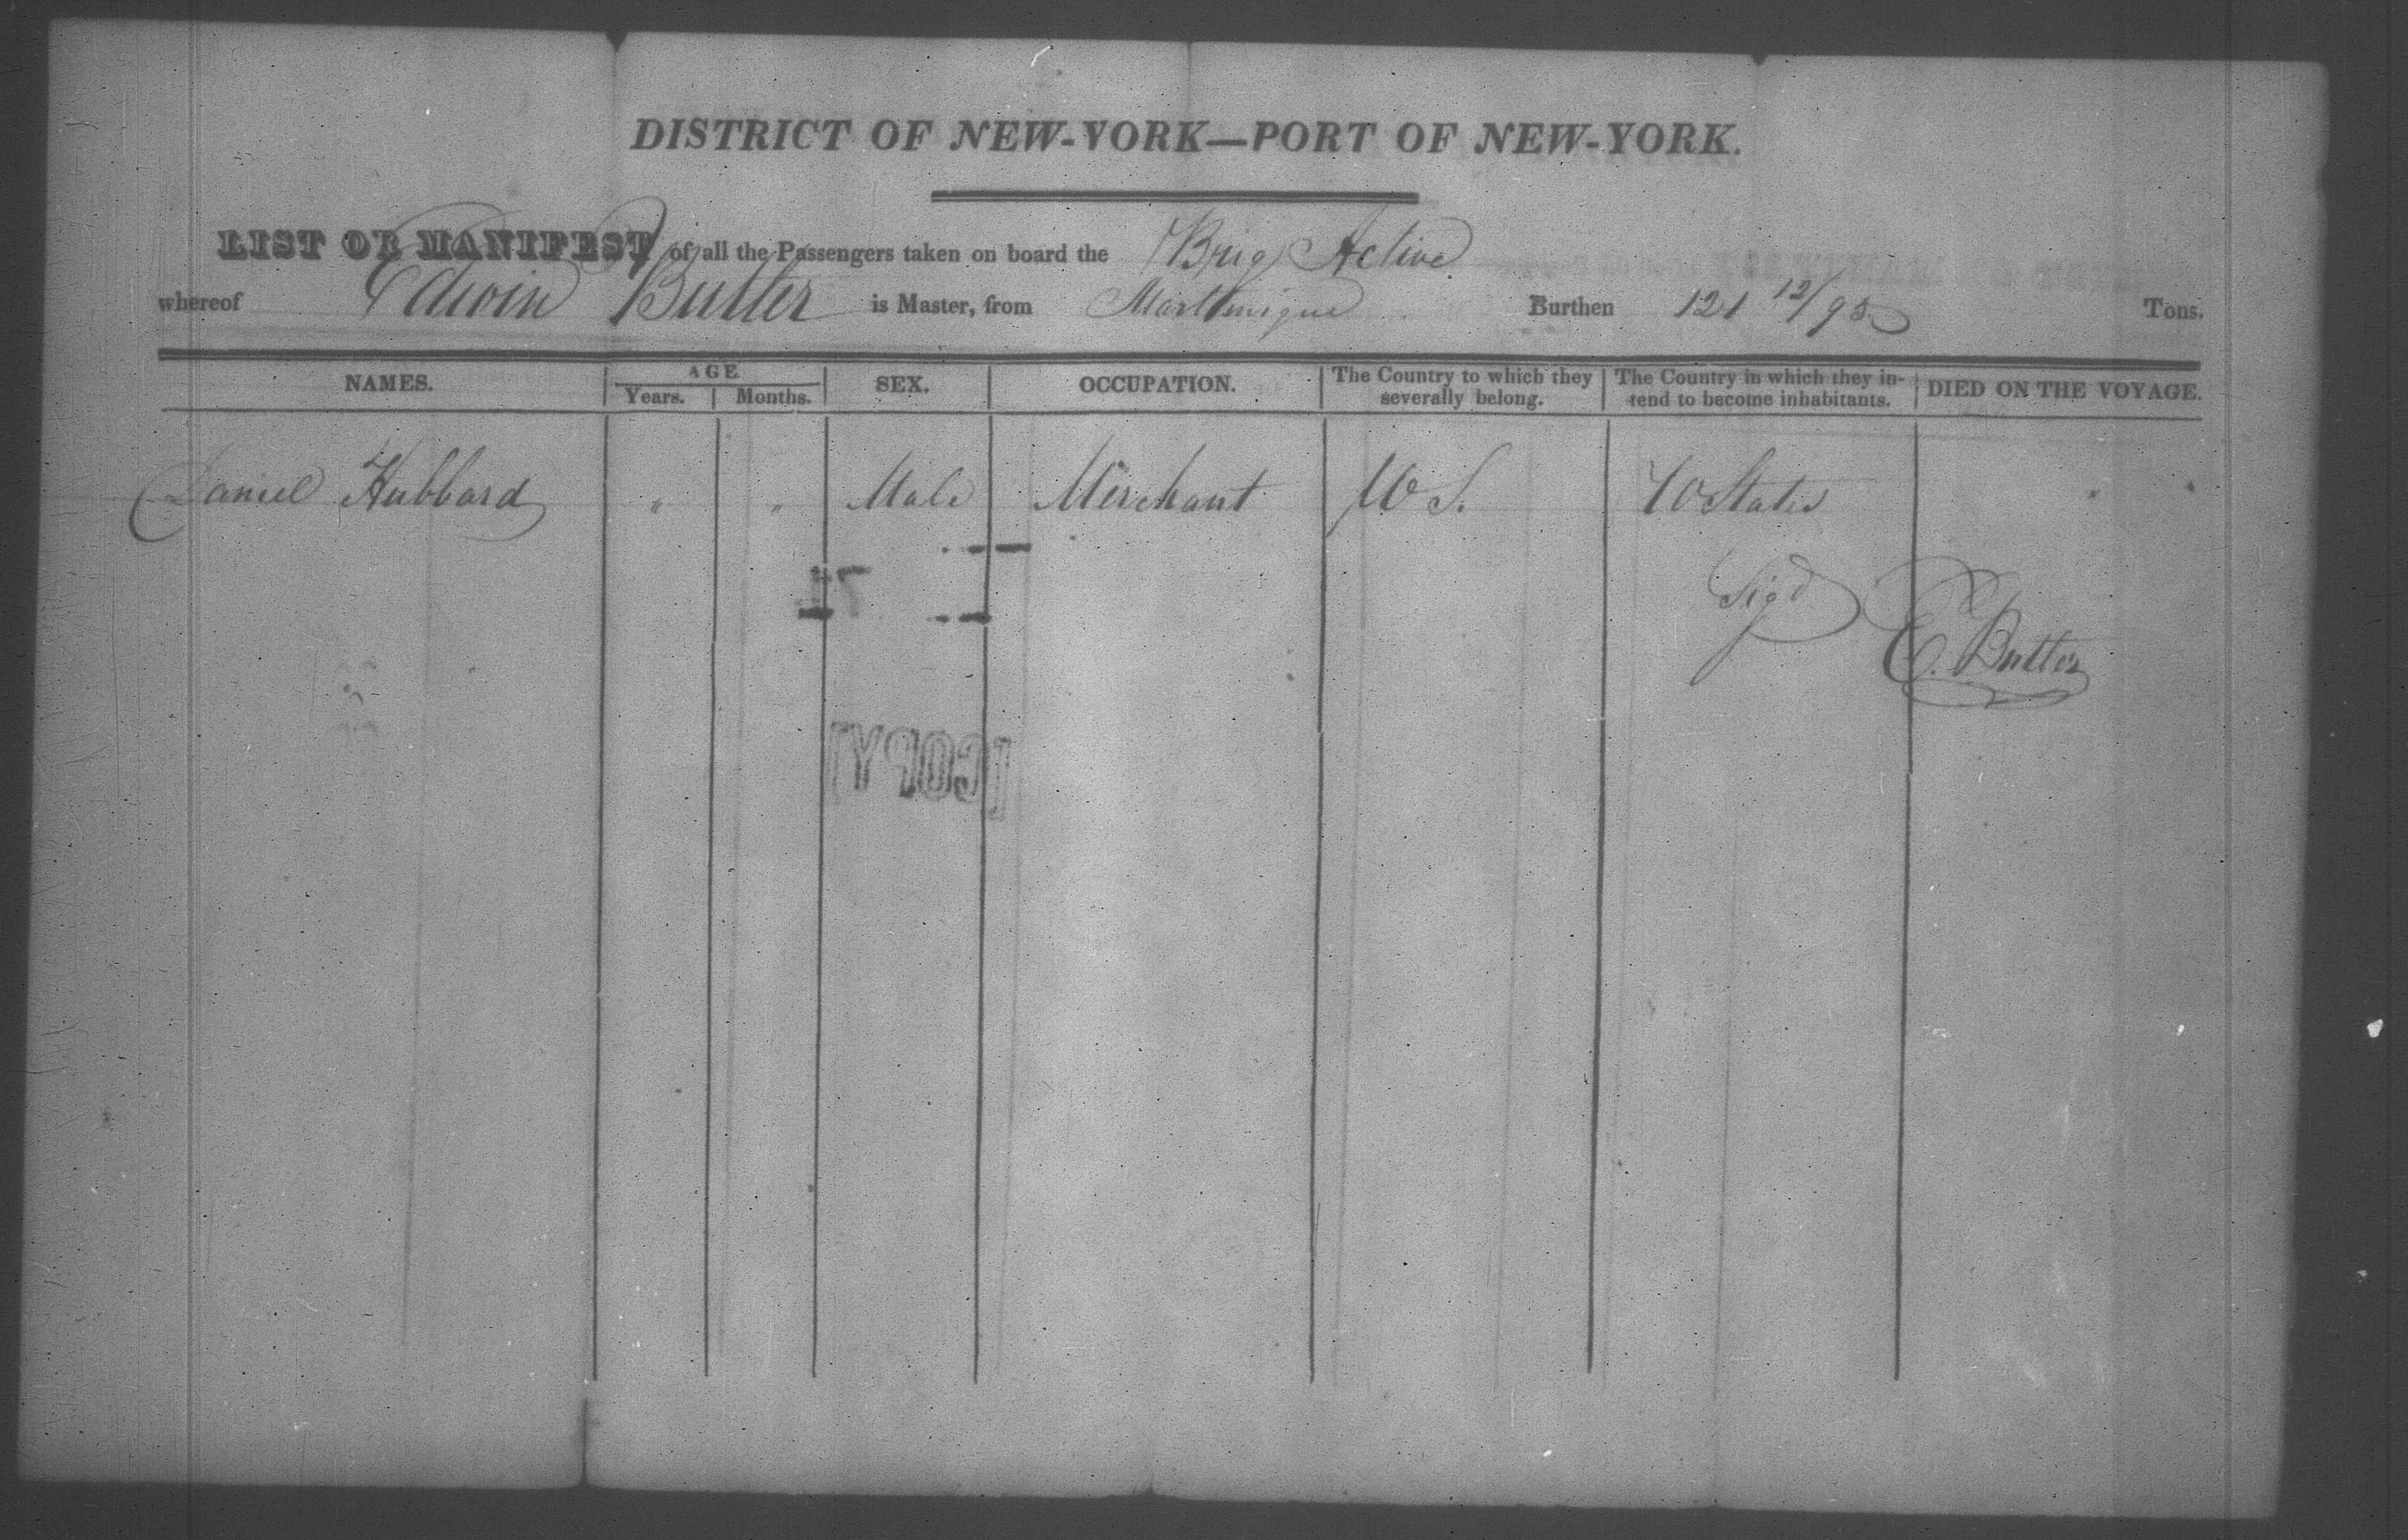 DISTRICT OF NEW-YORK—PORT OF NEW-YORK.
LIST OR MANIFEST of all the Passengers taken on board the Brig Active
whereof Edwin Butler is Master, from Martinique Burthen 121 12/95 Tons.
NAMES. AGE Years. Months. SEX. OCCUPATION. The Country to which they severally belong. The Country in which they intend to become inhabitants. DIED ON THE VOYAGE.
Daniel Hubbard " " Male Merchant U S. U States " "
Sigd
E. Butler
[COPY]